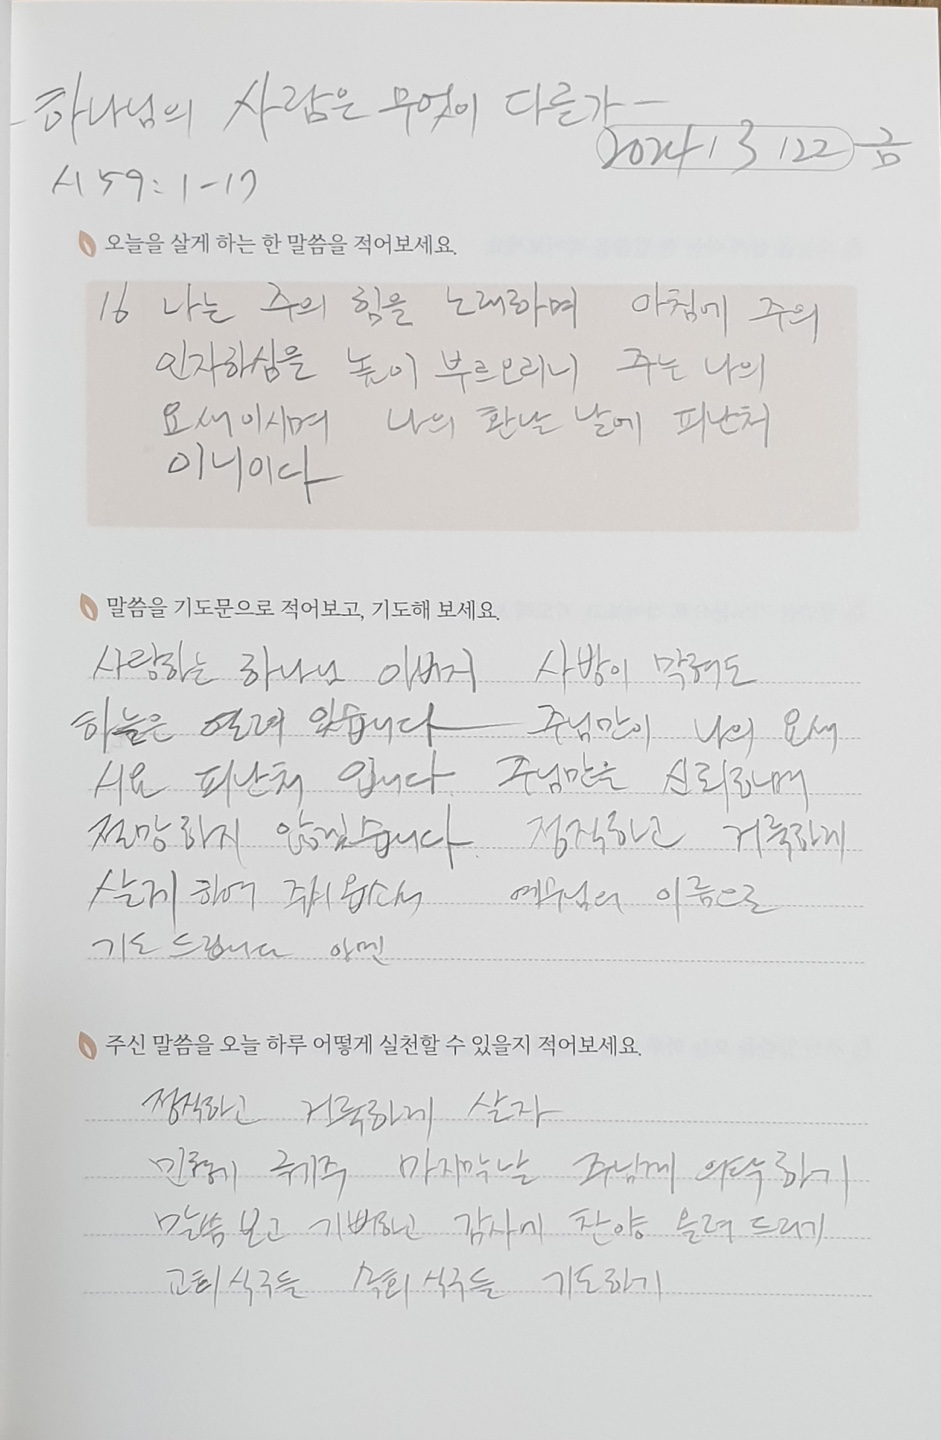 - 하나님의 사람은 무엇이 다를가 -
2024 / 3 / 22 금
시 59: 1-17
오늘을 살게 하는 한 말씀을 적어보세요.
16 나는 주의 힘을 노래하며 아침에 주의
인자하심을 높이 부르오리니 주는 나의
요새이시며 나의 환난 날에 피난처
이니이다
말씀을 기도문으로 적어보고, 기도해 보세요.
사랑하는 하나님 아버지 사방이 막혀도
하늘은 열려 있습니다 주님만이 나의 요새
시요 피난처 입니다. 주님만을 신뢰하며
절망하지 않겠습니다. 정직하고 거룩하게
살게 하여 주시옵소서 예수님의 이름으로
기도 드립니다 아멘
주신 말씀을 오늘 하루 어떻게 실천할 수 있을지 적어보세요.
정직하고 거룩하게 살자
마지막날 주님께 의탁하기
말씀 보고 기뻐하고 감사의 찬양 올려 드리기
교회식구들 식구들 기도하기